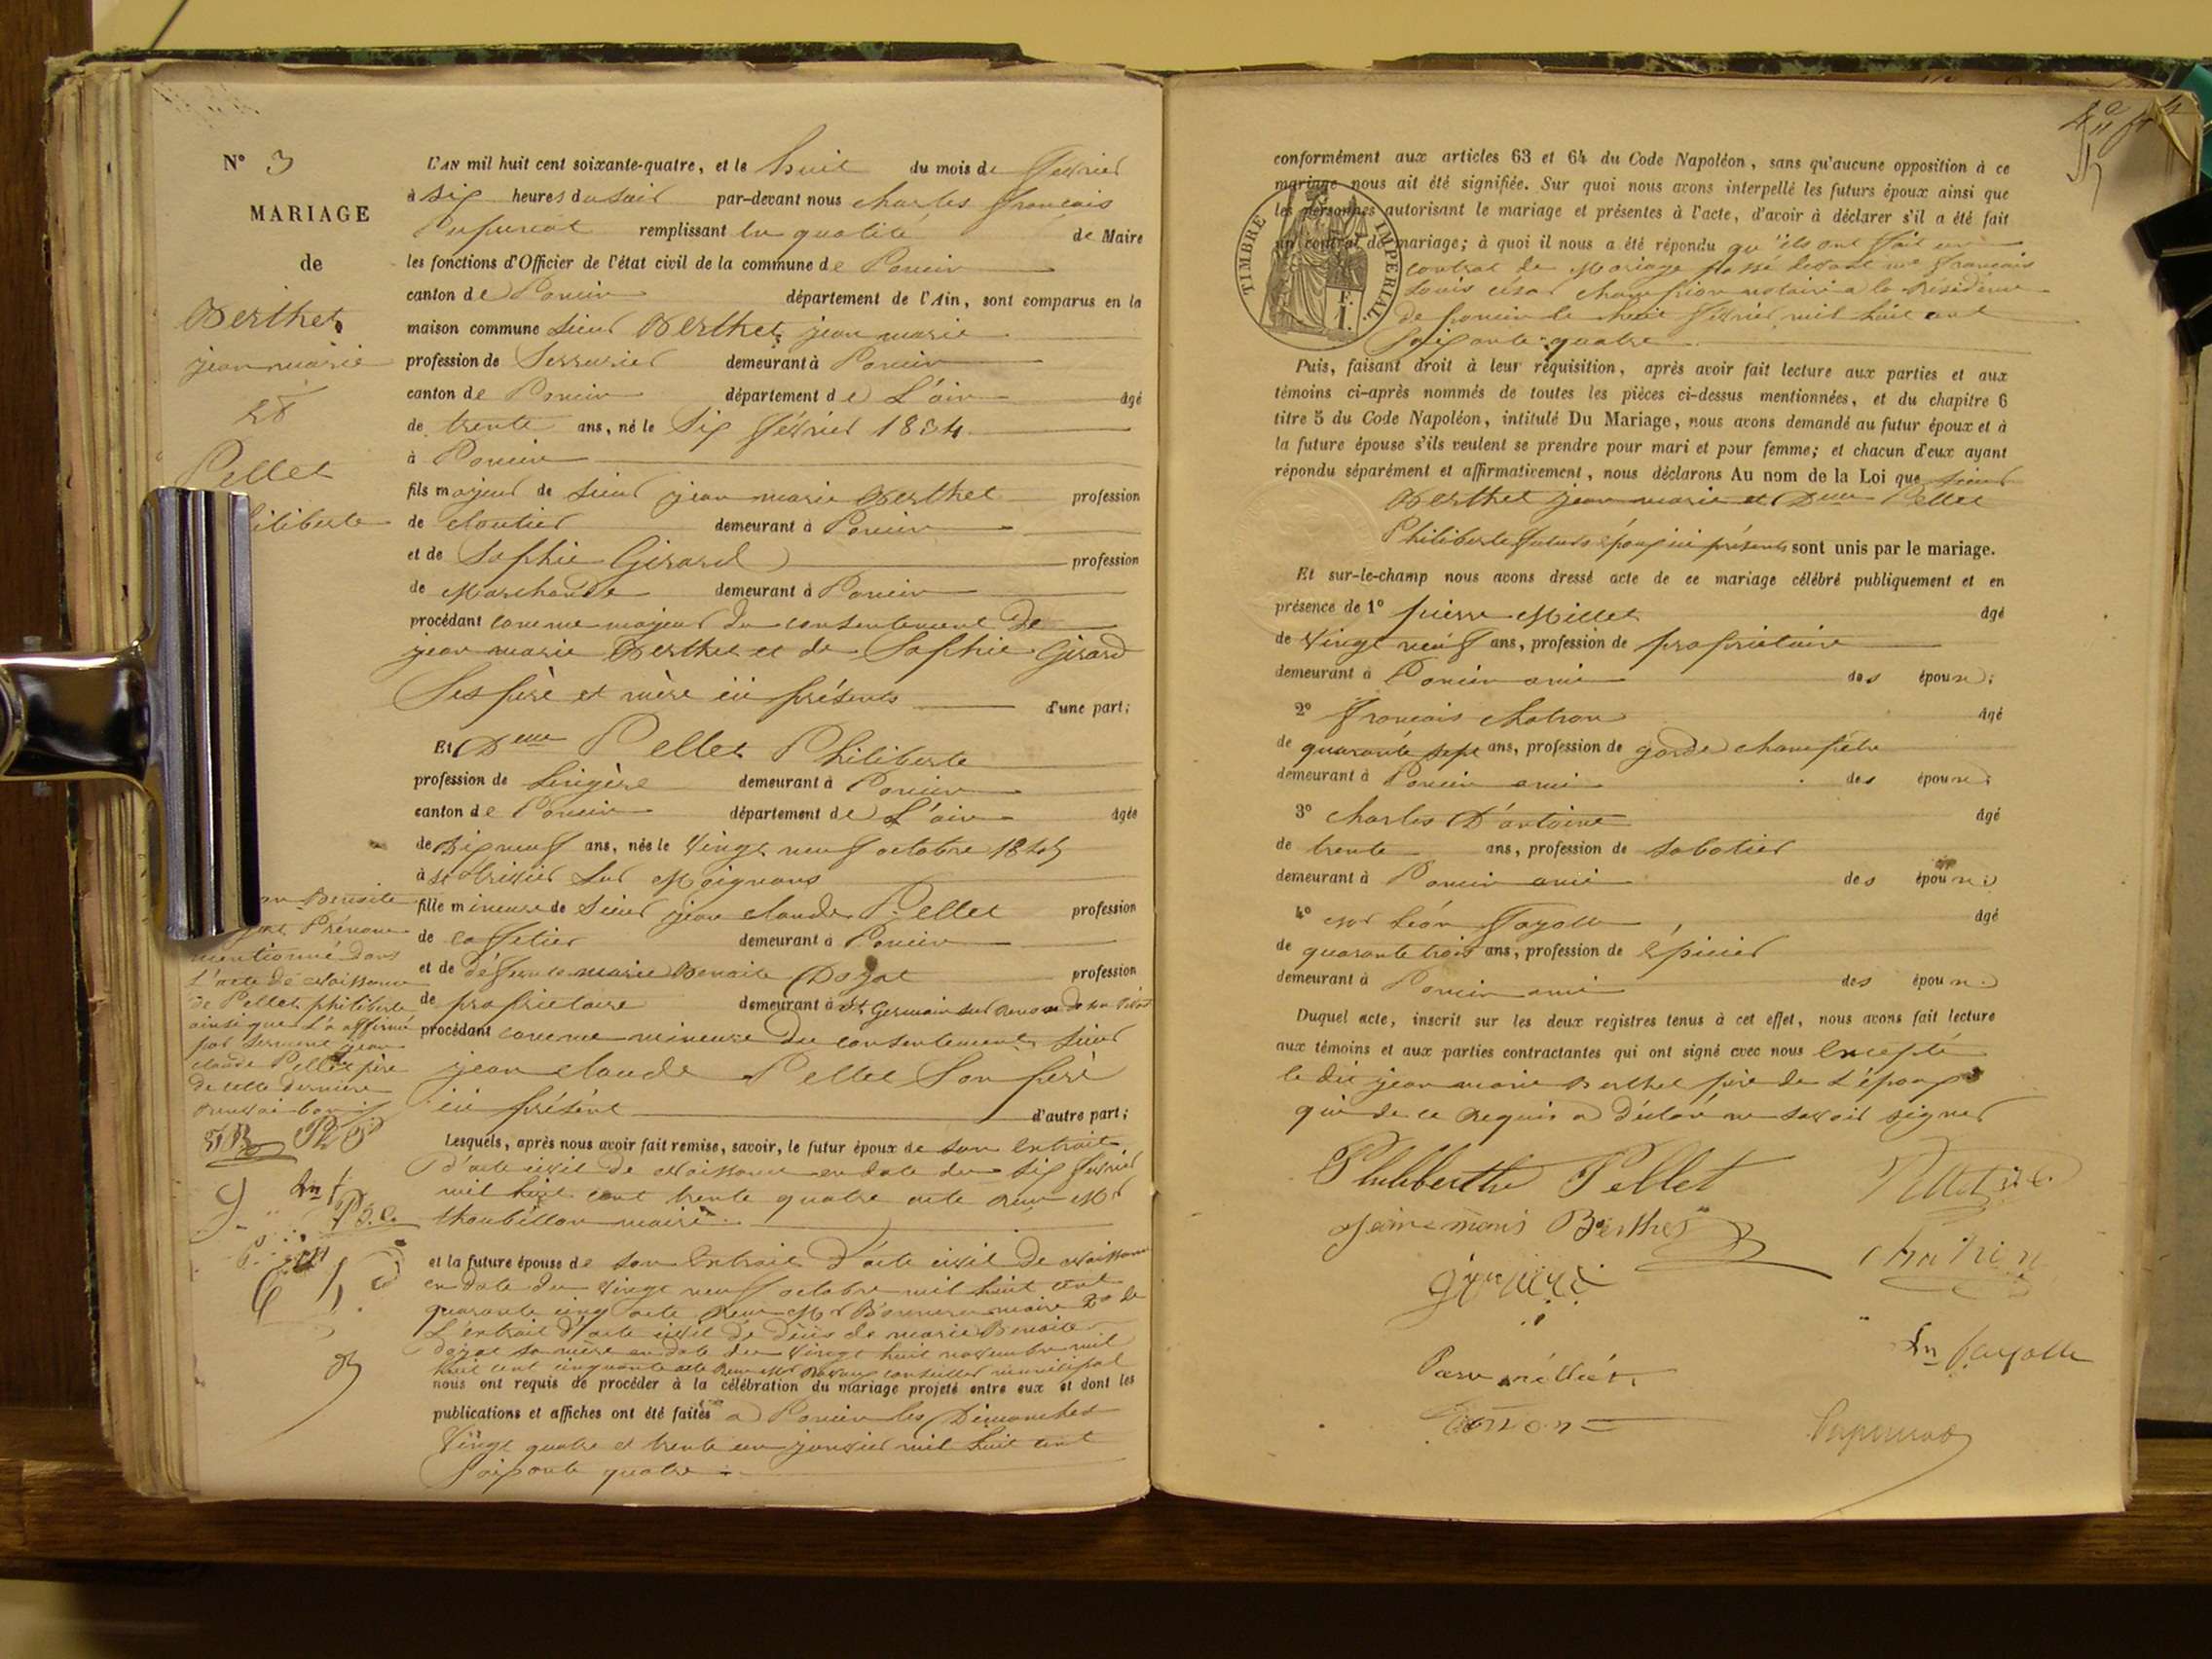 N° 3
MARIAGE
de
Berthet
jean marie
et
Pellet
iliberte
L'AN mil huit cent soixante-quatre, et le huit du mois de fevrier
à six heures du soir par-devant nous charles francois
remplissant en qualité de Maire
les fonctions d'Officier de l'état civil de la commune de Poncin
canton de Poncin département de l'Ain, sont comparus en la
maison commune Sieur Berthet jean marie
profession de Serrurier demeurant à Poncin
canton de Poncin département de L'ain âgé
de trente ans, né le Six février 1834
à Poncin
fils majeur de Sieur jean marie Berthet profession
de cloutier demeurant à Poncin
et de Sophie Girard profession
de Marchande demeurant à Poncin
procédant comme majeur du consentement de
jean marie Berthet et de Sophie Girard
Ses père et mère ici présents d'une part;
Et Delle Pellet Philiberte
profession de lingère demeurant à Poncin
canton de Poncin département de L'ain âgée
de dix neuf ans, née le vingt neuf octobre 1845
à st trivier sur Moignans
fille mineure de Sieur jean claude Pellet profession
de caffetier demeurant à Poncin
et de défunte marie Benoite Dozat profession
de propriétaire demeurant à st Germain sur Renom de son vivant
procédant comme mineure du consentement sieur
jean claude Pellet Son père
ici présent d'autre part;
Benoite
Prénom
mentionné dans
l'acte de naissance
de Pellet philiberte
ainsi que l'a affirmé
par serment jean
claude Pellet père
de cette dernière
Lesquels, après nous avoir fait remise, savoir, le futur époux de son extrait
d'acte civil de naissance en date du six fevrier
mil huit cent trente quatre acte reçu Mr
Thoubillon maire
et la future épouse de son Extrait d'acte civil de naissance
en date du vingt neuf octobre mil huit cent
quarante cinq acte reçu Mr maire 2° de
L'extrait d'acte civil de décès de marie Benoite
dozat sa mère en date du vingt huit novembre mil
huit cent cinquante acte reçu Mr conseiller municipal
nous ont requis de procéder à la célébration du mariage projeté entre eux et dont les
publications et affiches ont été faites a Poncin les Dimanches
Vingt quatre et trente un janvier mil huit cent
soixante quatre
conformément aux articles 63 et 64 du Code Napoléon, sans qu'aucune opposition à ce
mariage nous ait été signifiée. Sur quoi nous avons interpellé les futurs époux ainsi que
les personnes autorisant le mariage et présentes à l'acte, d'avoir à déclarer s'il a été fait
un contrat de mariage; à quoi il nous a été répondu qu'ils ont fait un
contrat de Mariage passé devant me francois
Louis césar champion notaire a la residence
de poncin le huit février mil huit cent
soixante quatre
TIMBRE IMPERIAL
1 F.
Puis, faisant droit à leur réquisition, après avoir fait lecture aux parties et aux
témoins ci-après nommés de toutes les pièces ci-dessus mentionnées, et du chapitre 6
titre 5 du Code Napoléon, intitulé Du Mariage, nous avons demandé au futur époux et à
la future épouse s'ils veulent se prendre pour mari et pour femme; et chacun d'eux ayant
répondu séparément et affirmativement, nous déclarons Au nom de la Loi que sieur
Berthet jean marie et Delle Pellet
Philiberte futurs époux ici présents sont unis par le mariage.
Et sur-le-champ nous avons dressé acte de ce mariage célébré publiquement et en
présence de 1° pierre Millet âgé
de vingt neuf ans, profession de propriétaire
demeurant à Poncin ami des époux;
2° francois chatron âgé
de quarante sept ans, profession de garde champêtre
demeurant à Poncin ami des époux;
3° charles D'antoine âgé
de trente ans, profession de sabotier
demeurant à Poncin ami des époux;
4° Léon Fayolle âgé
de quarante trois ans, profession de épicier
demeurant à Poncin ami des époux.
Duquel acte, inscrit sur les deux registres tenus à cet effet, nous avons fait lecture
aux témoins et aux parties contractantes qui ont signé avec nous Excepté
le dit jean marie Berthet père de l'époux
qui de ce requis a déclaré ne savoir signer
Philiberthe Pellet
Jean marie Berthet
Ln fayolle